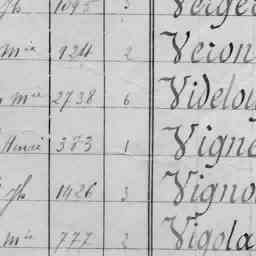 Jh 1095 3 Verge
Mie 924 2 Veron
Mie 2738 6 Videlou
Henri 383 1 Vign
Jh 1426 3 Vigno
Mie 777 2 Vigola